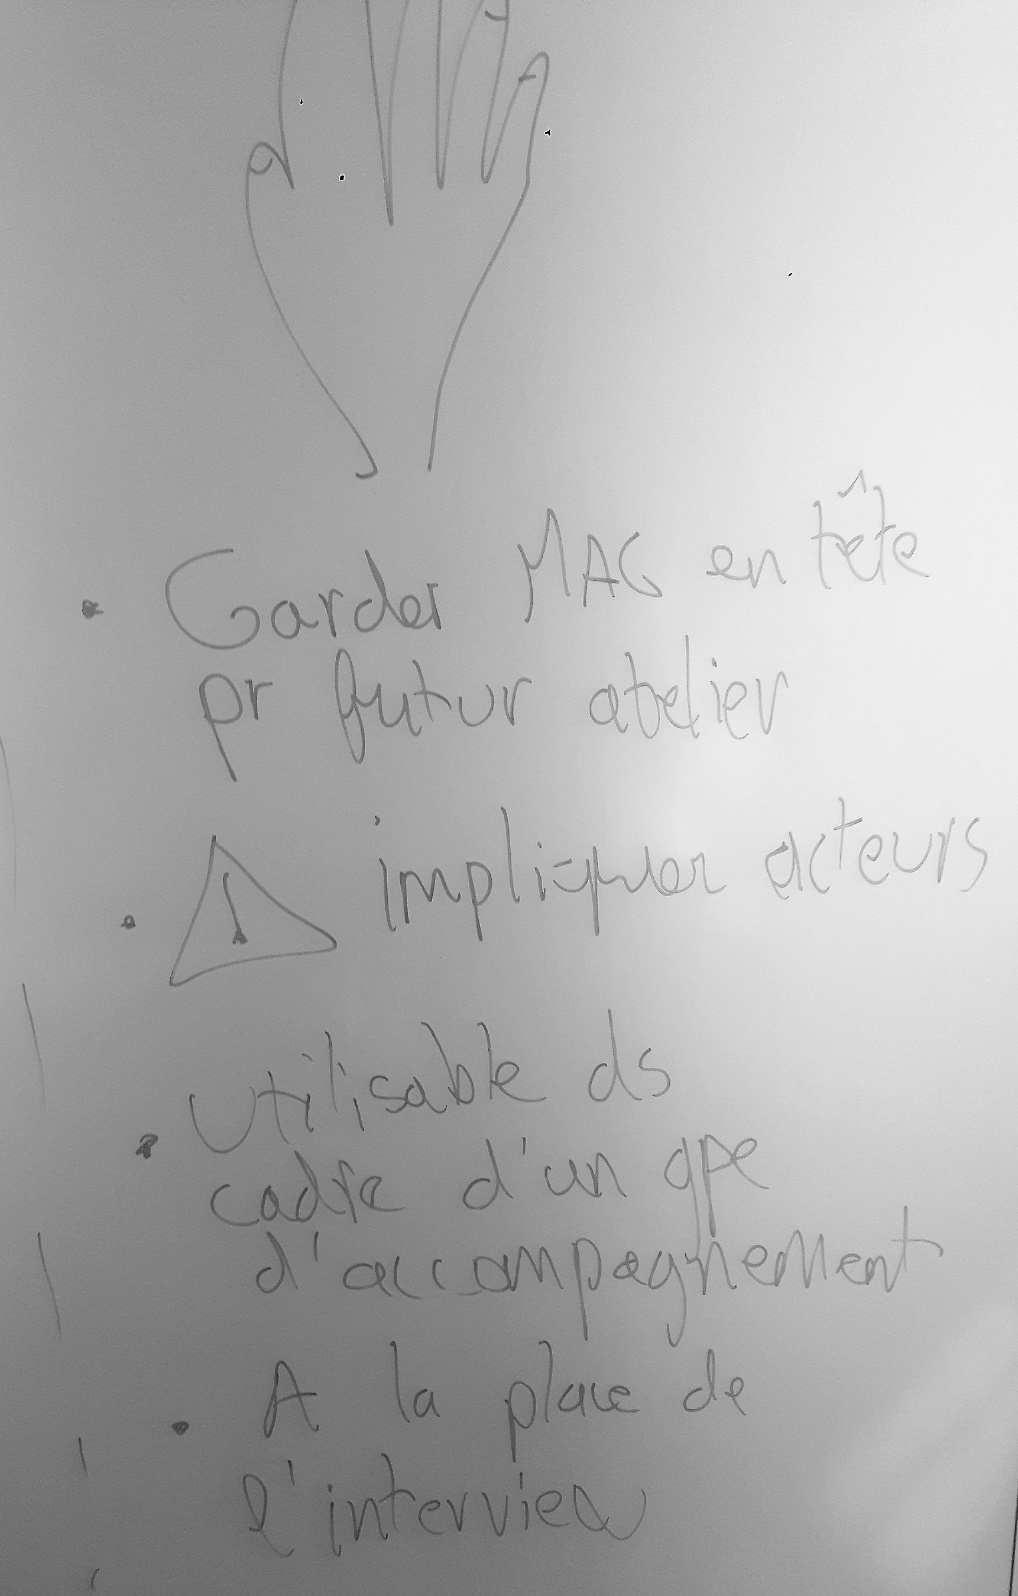 • Garder MAG en tête
pr futur atelier
• ⚠ impliquer acteurs
• Utilisable ds
cadre d'un gpe
d'accompagnement
• A la place de
l'interview